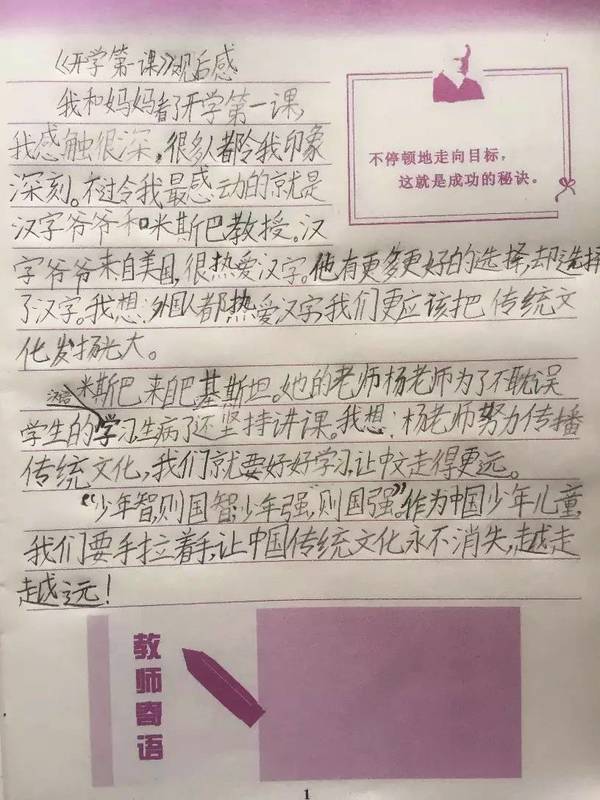 《开学第一课》观后感
我和妈妈看了开学第一课,
我感触很深,很多人都令我印象
深刻。不过令我最感动的就是
汉字爷爷和米斯巴教授。汉
不停顿地走向目标,
这就是成功的秘诀。
字爷爷来自美国,很热爱汉字。他有更多更好的选择,却选择
了汉字。我想:外国人都热爱汉字,我们更应该把传统文
化发扬光大。
米斯巴来自巴基斯坦。她的老师杨老师为了不耽误
学生的学习,生病了还坚持讲课。我想:杨老师努力传播
传统文化,我们就要好好学习,让中文走得更远。
“少年智,则国智,少年强,则国强”。作为中国少年儿童,
我们要手拉着手,让中国传统文化永不消失,越走
越远!
教师寄语
1